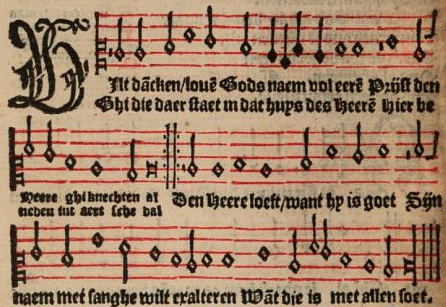 Wilt dãcken/louẽ Gods naem vol eerẽ Prijst den
Ghi die daer staet in dat huys des Heerẽ hier be
Heere ghi knechten al
neden int aert sche dal
Den Heere loeft/want hy is goet Sijn
naem met sanghe wilt exalteren Wãt die is met allen soet.